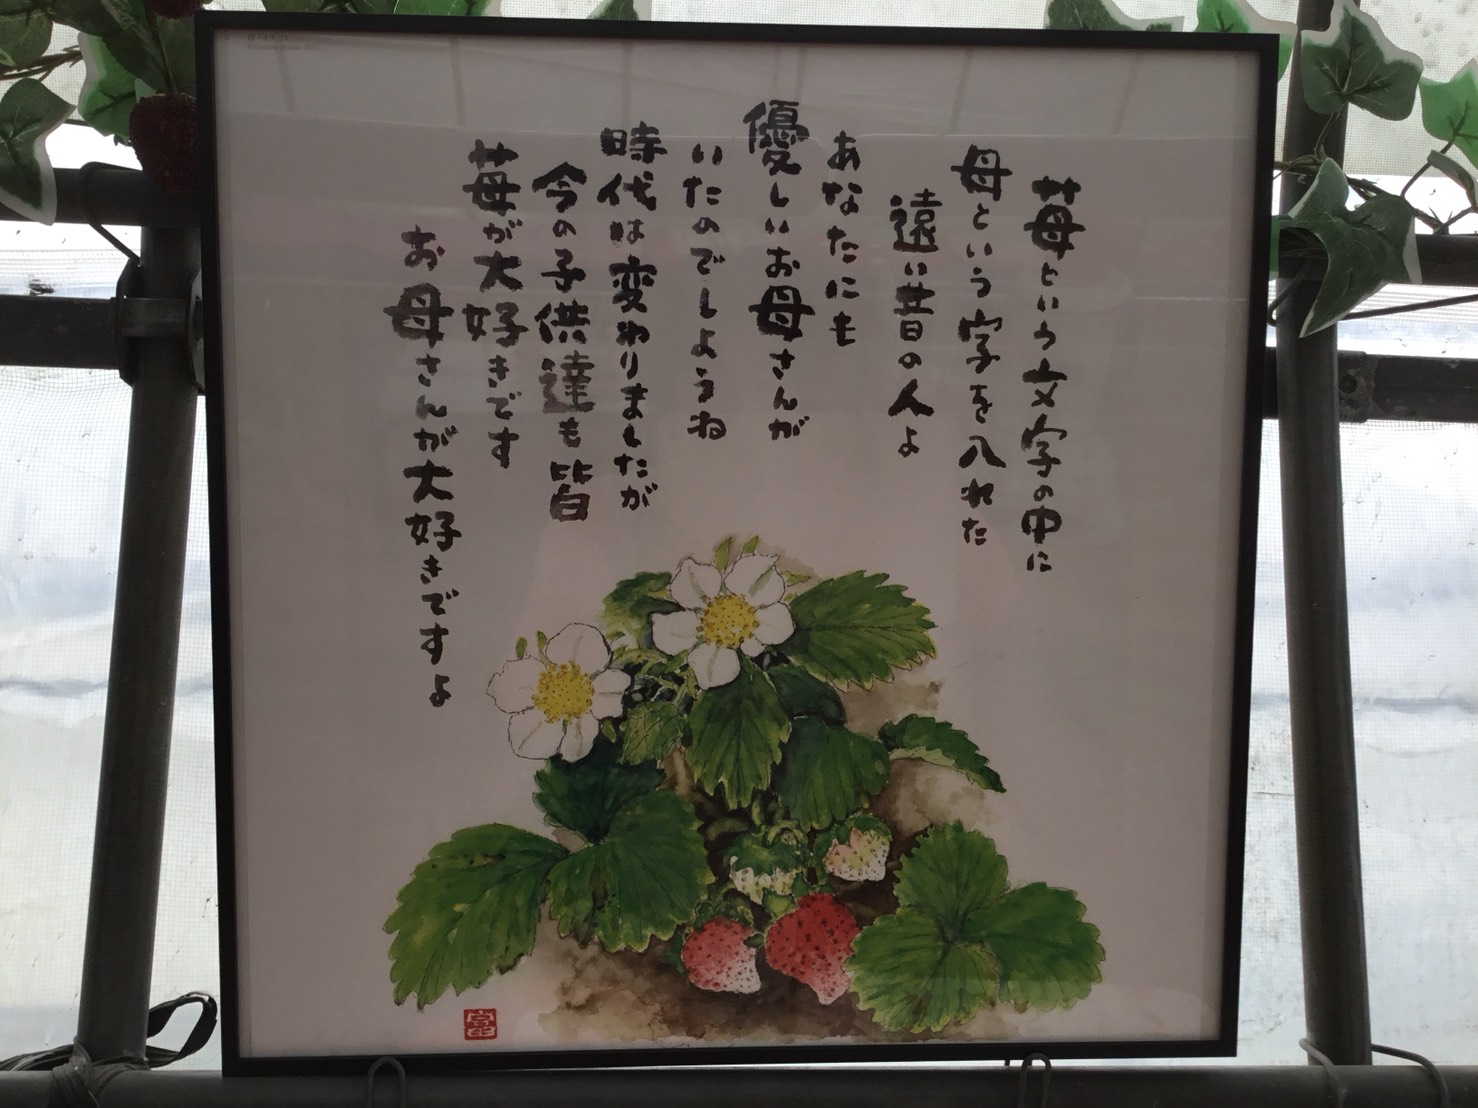 苺という文字の中に
母という字を入れた
遠い昔の人よ
あなたにも
優しいお母さんが
いたのでしようね
時代は変わりましたが
今の子供達も皆
苺が大好きです
お母さんが大好きですよ
富